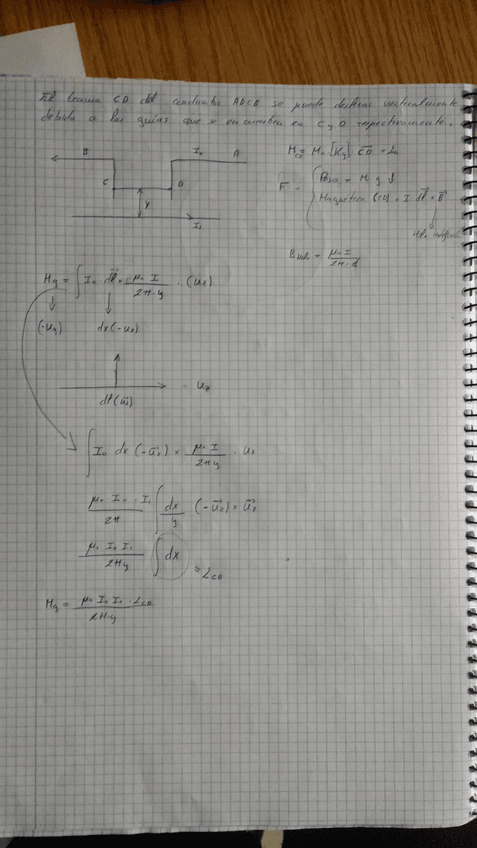 El tramo CD del conductor ABCD se puede deslizar verticalmente
debido a las guías que se encuentran en C y D respectivamente.
B I₂ A
C D
Y
I₁
F
Peso = M g ↓
Magnética (CD) = I dl × B
Hilo indefinido
B hilo = μ₀ I / 2π·d
Mg = ∫ I₂ dl × μ₀ I / 2π y · (u₂)
(-u_y) dx(-uₓ)
∫ I₂ dx (-uₓ) × μ₀ I / 2π y · u₂
μ₀ · I₂ · I₁ / 2π ∫ dx / y (-uₓ) × u₂
μ₀ I₂ I₁ / 2π y ∫ dx = L_CD
Mg = μ₀ I₂ I₁ · L_CD / 2π·y